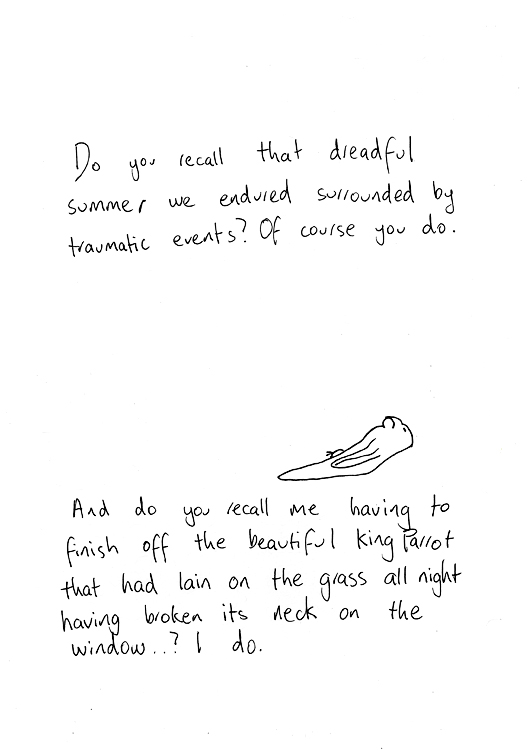 Do you recall that dreadful
summer we endured surrounded by
traumatic events? Of course you do.
And do you recall me having to
finish off the beautiful king Parrot
that had lain on the grass all night
having broken its neck on the
window..? I do.